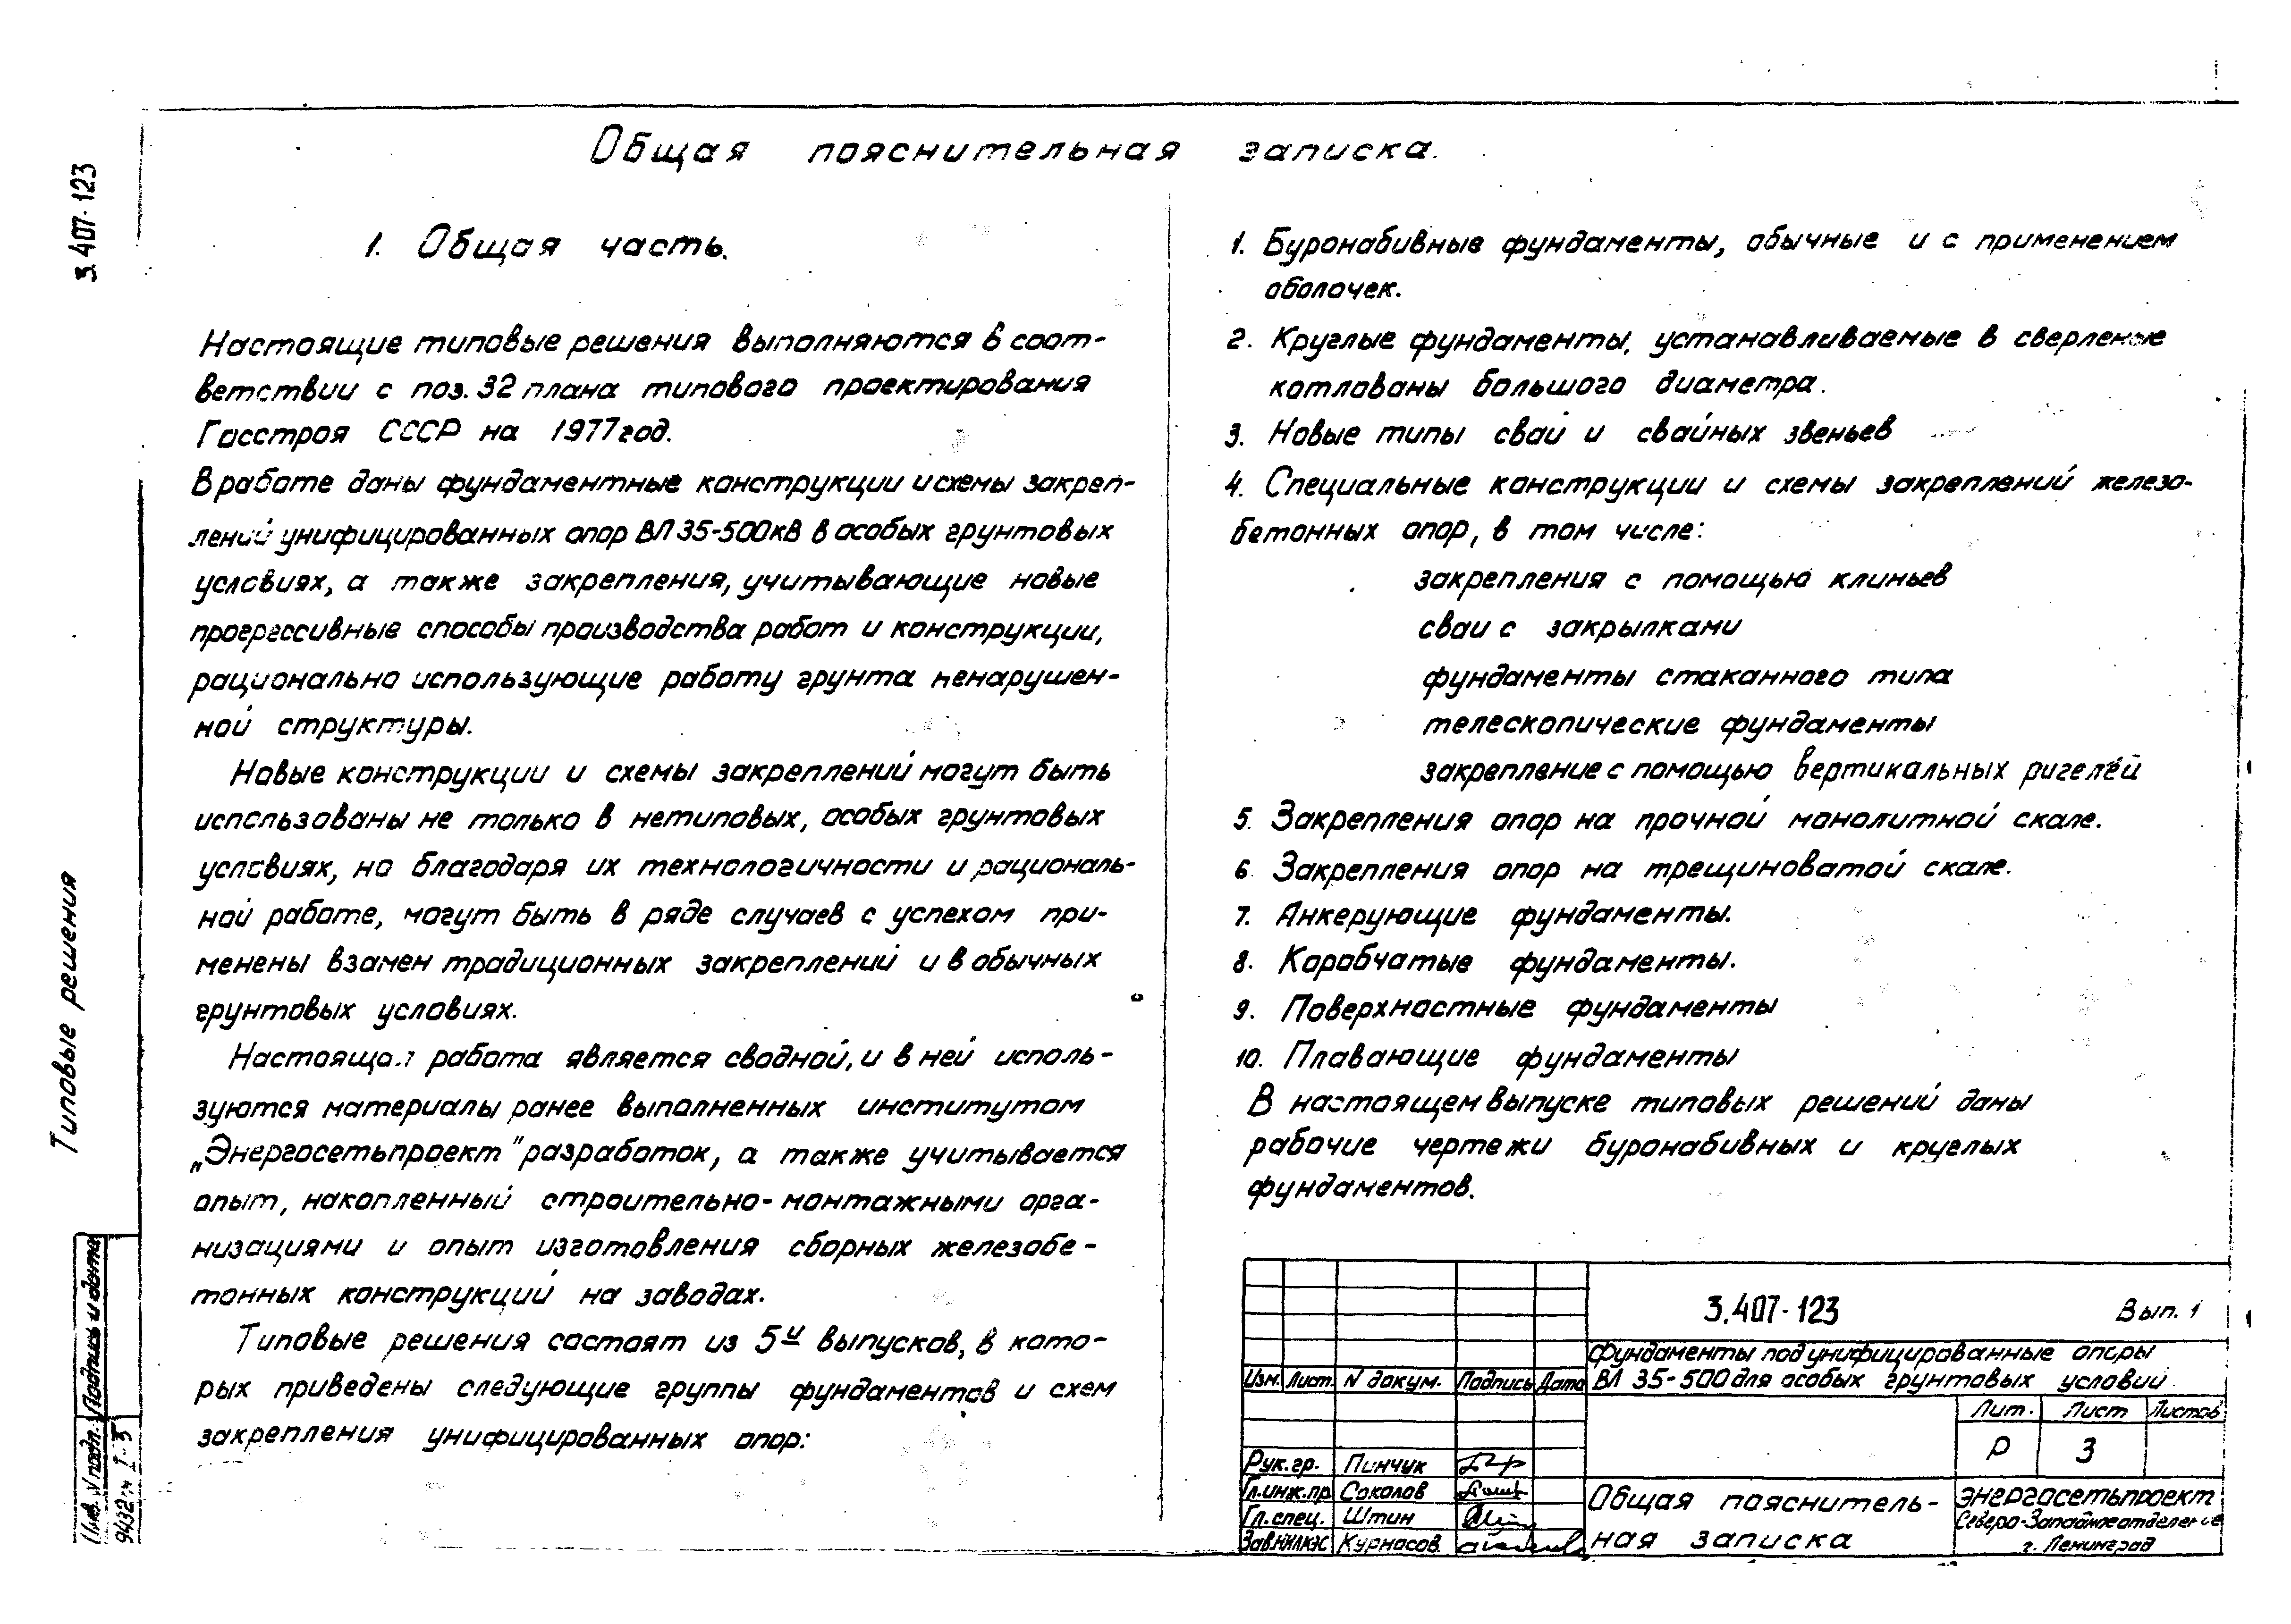 Общая пояснительная записка.
1. Общая часть.
Настоящие типовые решения выполняются в соот-
ветствии с поз. 32 плана типового проектирования
Госстроя СССР на 1977 год.
В работе даны фундаментные конструкции и схемы закреп-
лений унифицированных опор ВЛ 35-500кВ в особых грунтовых
условиях, а также закрепления, учитывающие новые
прогрессивные способы производства работ и конструкции,
рационально использующие работу грунта ненарушен-
ной структуры.
Новые конструкции и схемы закреплений могут быть
использованы не только в нетиповых, особых грунтовых
условиях, но благодаря их технологичности и рациональ-
ной работе, могут быть в ряде случаев с успехом при-
менены взамен традиционных закреплений и в обычных
грунтовых условиях.
Настоящая работа является сводной, и в ней исполь-
зуются материалы ранее выполненных институтом
„Энергосетьпроект" разработок, а также учитывается
опыт, накопленный строительно-монтажными орга-
низациями и опыт изготовления сборных железобе-
тонных конструкций на заводах.
Типовые решения состоят из 5и выпусков, в кото-
рых приведены следующие группы фундаментов и схем
закрепления унифицированных опор:
1. Буронабивные фундаменты, обычные и с применением
оболочек.
2. Круглые фундаменты, устанавливаемые в сверленые
котлованы большого диаметра.
3. Новые типы свай и свайных звеньев
4. Специальные конструкции и схемы закреплений железо-
бетонных опор, в том числе:
закрепления с помощью клиньев
сваи с закрылками
фундаменты стаканного типа
телескопические фундаменты
закрепление с помощью вертикальных ригелей
5. Закрепления опор на прочной монолитной скале.
6. Закрепления опор на трещиноватой скале.
7. Анкерующие фундаменты.
8. Коробчатые фундаменты.
9. Поверхностные фундаменты
10. Плавающие фундаменты
В настоящем выпуске типовых решений даны
рабочие чертежи буронабивных и круглых
фундаментов.
3.407-123 Вып. 1
Фундаменты под унифицированные опоры
ВЛ 35-500 для особых грунтовых условий
Изм. Лист N докум. Подпись Дата
Лит. Лист Листов
Р 3
Рук.гр. Пинчук
Гл.инж.пр Соколов
Гл. спец. Штин
Зав.НИЛКЭС Курносов
Общая пояснитель-
ная записка
Энергосетьпроект
Северо-Западное отделение
г. Ленинград
3.407-123
Типовые решения
Инв. N подл. Подпись и дата
9432тм I-5